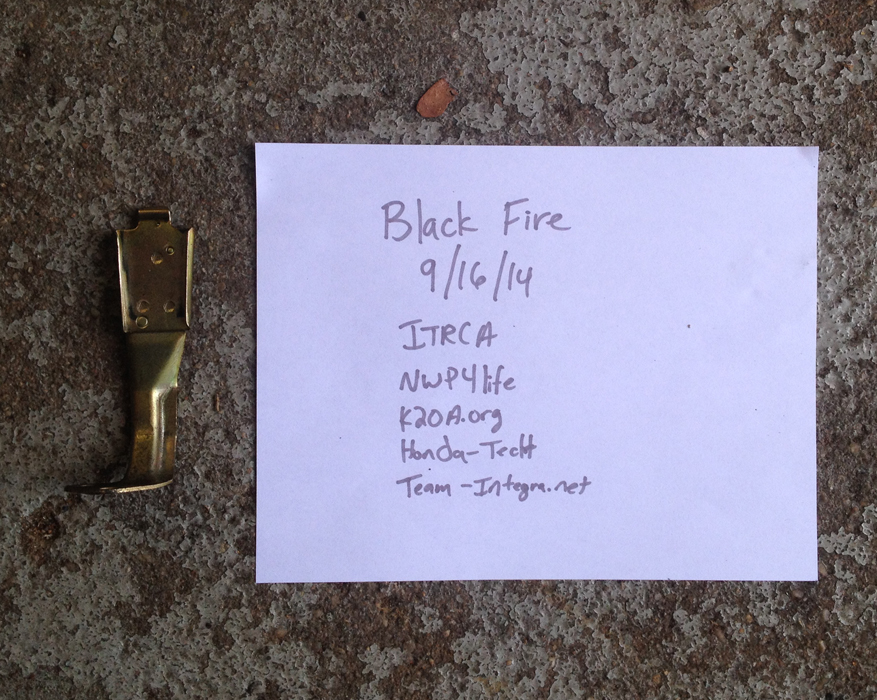 Black Fire
9/16/14
ITRCA
NWP4life
K20A.org
Honda-Tech
Team-Integra.net